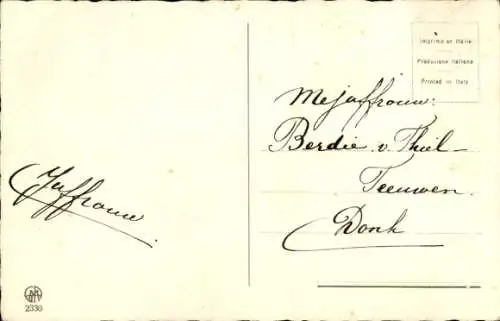 Imprimé en Italie
Produzione Italiana
Printed in Italy
Mejaffrouw:
Berdie v. Thiel-
Teeuwen.
Donk
Jaffrouw
2330